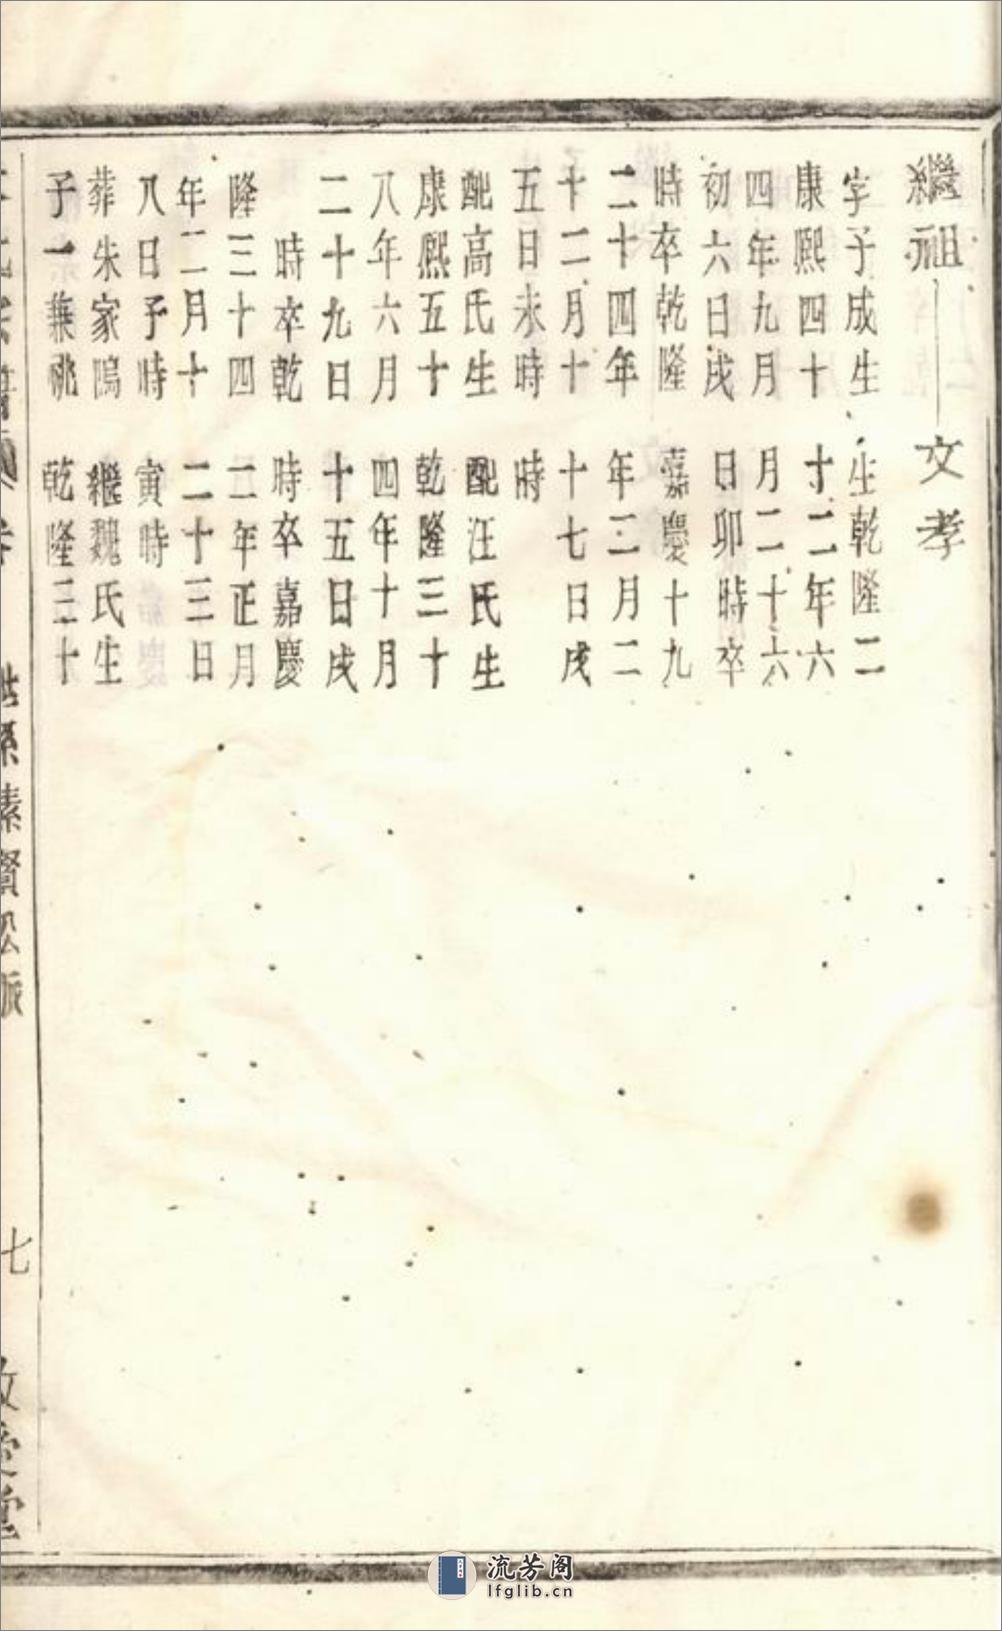 繼祖
字子成生
康熙四十
四年九月
初六日戌
時卒乾隆
二十四年
十二月十
五日未時
配高氏生
康熙五十
八年六月
二十九日
時卒乾
隆三十四
年二月十
八日予時
葬朱家塢
子一兼祧
文孝
生乾隆二
十二年六
月二十六
日卯時卒
嘉慶十九
年二月二
十七日戌
時
配汪氏生
乾隆三十
四年十月
十五日戌
時卒嘉慶
二年正月
二十三日
寅時
繼魏氏生
乾隆三十
七
流芳阁
lfglib.cn